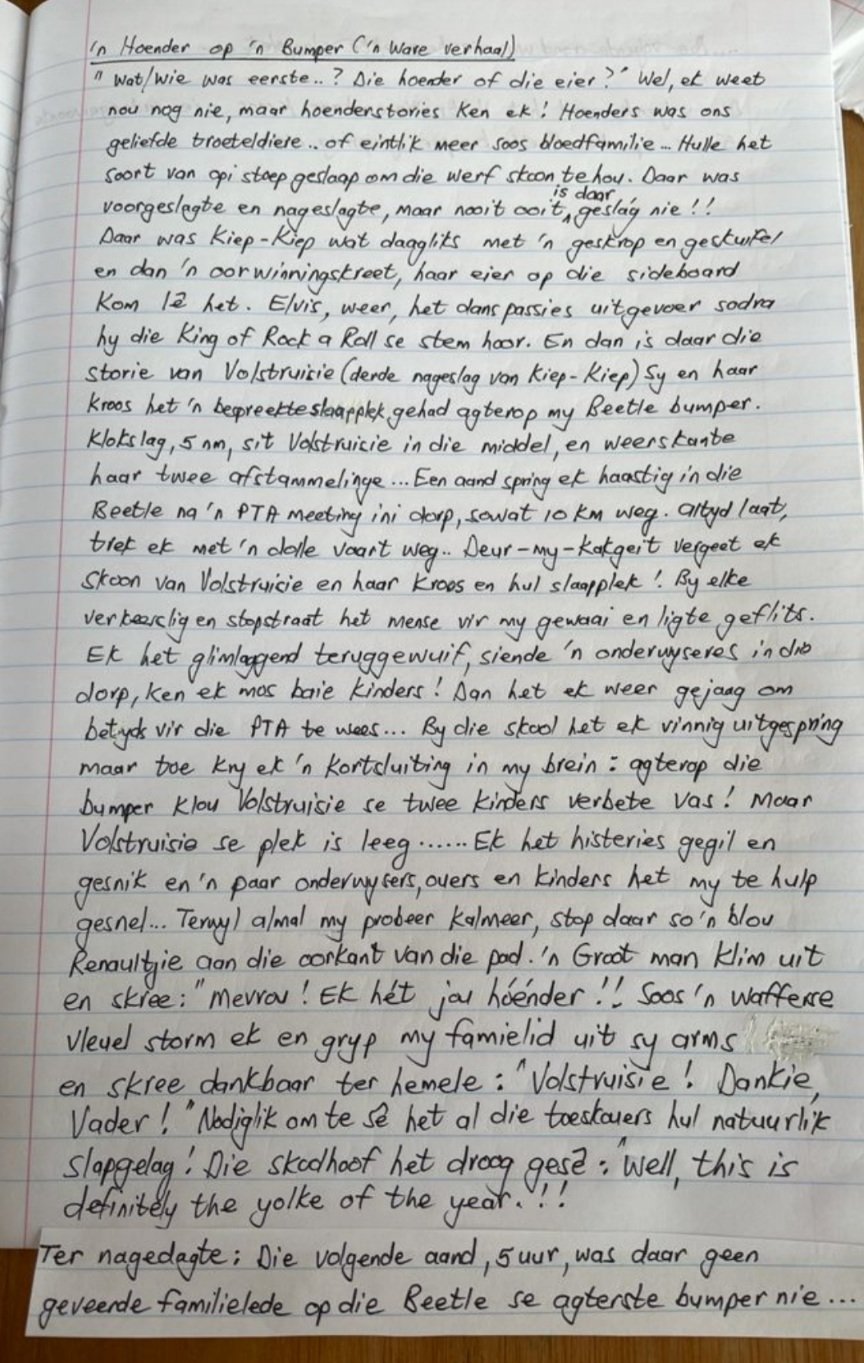 'n Hoender op 'n Bumper ('n Ware verhaal)
"Wat/wie was eerste..? Die hoender of die eier?" Wel, ek weet
nou nog nie, maar hoenderstories ken ek! Hoenders was ons
geliefde troeteldiere.. of eintlik meer soos bloedfamilie... Hulle het
soort van opi stoep geslaap om die werf skoon te hou. Daar was
voorgeslagte en nageslagte, maar nooit ooit is daar geslág nie!!
Daar was Kiep-Kiep wat daagliks met 'n geskrop en geskuifel
en dan 'n oorwinningskreet, haar eier op die sideboard
kom lê het. Elvis, weer, het danspassies uitgevoer sodra
hy die King of Rock a Roll se stem hoor. En dan is daar die
storie van Volstruisie (derde nageslag van Kiep-Kiep) Sy en haar
kroos het 'n bespreekte slaapplek gehad agterop my Beetle bumper.
Klokslag, 5 nm, sit Volstruisie in die middel, en weerskante
haar twee afstammelinge... Een aand spring ek haastig in die
Beetle na 'n PTA meeting ini dorp, sowat 10 km weg. Altyd laat,
trek ek met 'n dolle vaart weg.. Deur-my-kakgeit vergeet ek
skoon van Volstruisie en haar kroos en hul slaapplek! By elke
verkeerslig en stopstraat het mense vir my gewaai en ligte geflits.
Ek het glimlaggend teruggewuif, siende 'n onderwyseres in die
dorp, ken ek mos baie kinders! Dan het ek weer gejaag om
betyds vir die PTA te wees... By die skool het ek vinnig uitgespring
maar toe kry ek 'n kortsluiting in my brein: agterop die
bumper klou Volstruisie se twee kinders verbete vas! Maar
Volstruisie se plek is leeg...... Ek het histeries gegil en
gesnik en 'n paar onderwysers, ouers en kinders het my te hulp
gesnel... Terwyl almal my probeer kalmeer, stop daar so'n blou
Renaultjie aan die oorkant van die pad. 'n Groot man klim uit
en skree: "Mevrou! Ek hét jou hóénder!! Soos 'n wafferse
vleuel storm ek en gryp my famielid uit sy arms
en skree dankbaar ter hemele: "Volstruisie! Dankie,
Vader!" Nodiglik om te sê het al die toeskouers hul natuurlik
slapgelag! Die skoolhoof het droog gesê: "Well, this is
definitely the yolke of the year.!!
Ter nagedagte: Die volgende aand, 5 uur, was daar geen
geveerde familielede op die Beetle se agterste bumper nie...